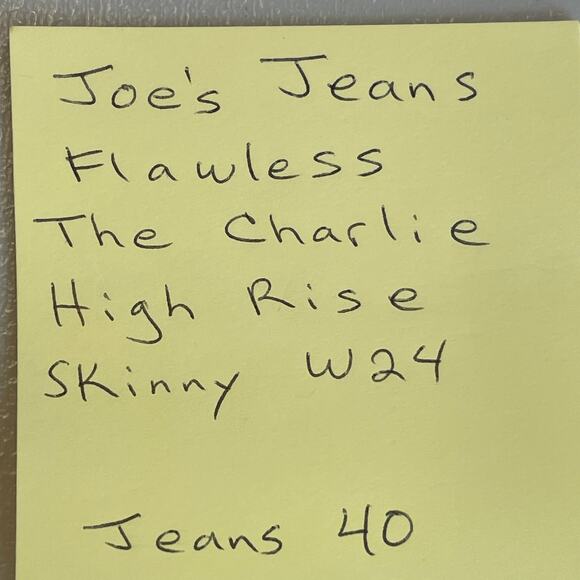 Joe's Jeans
Flawless
The Charlie
High Rise
Skinny W24
Jeans 40